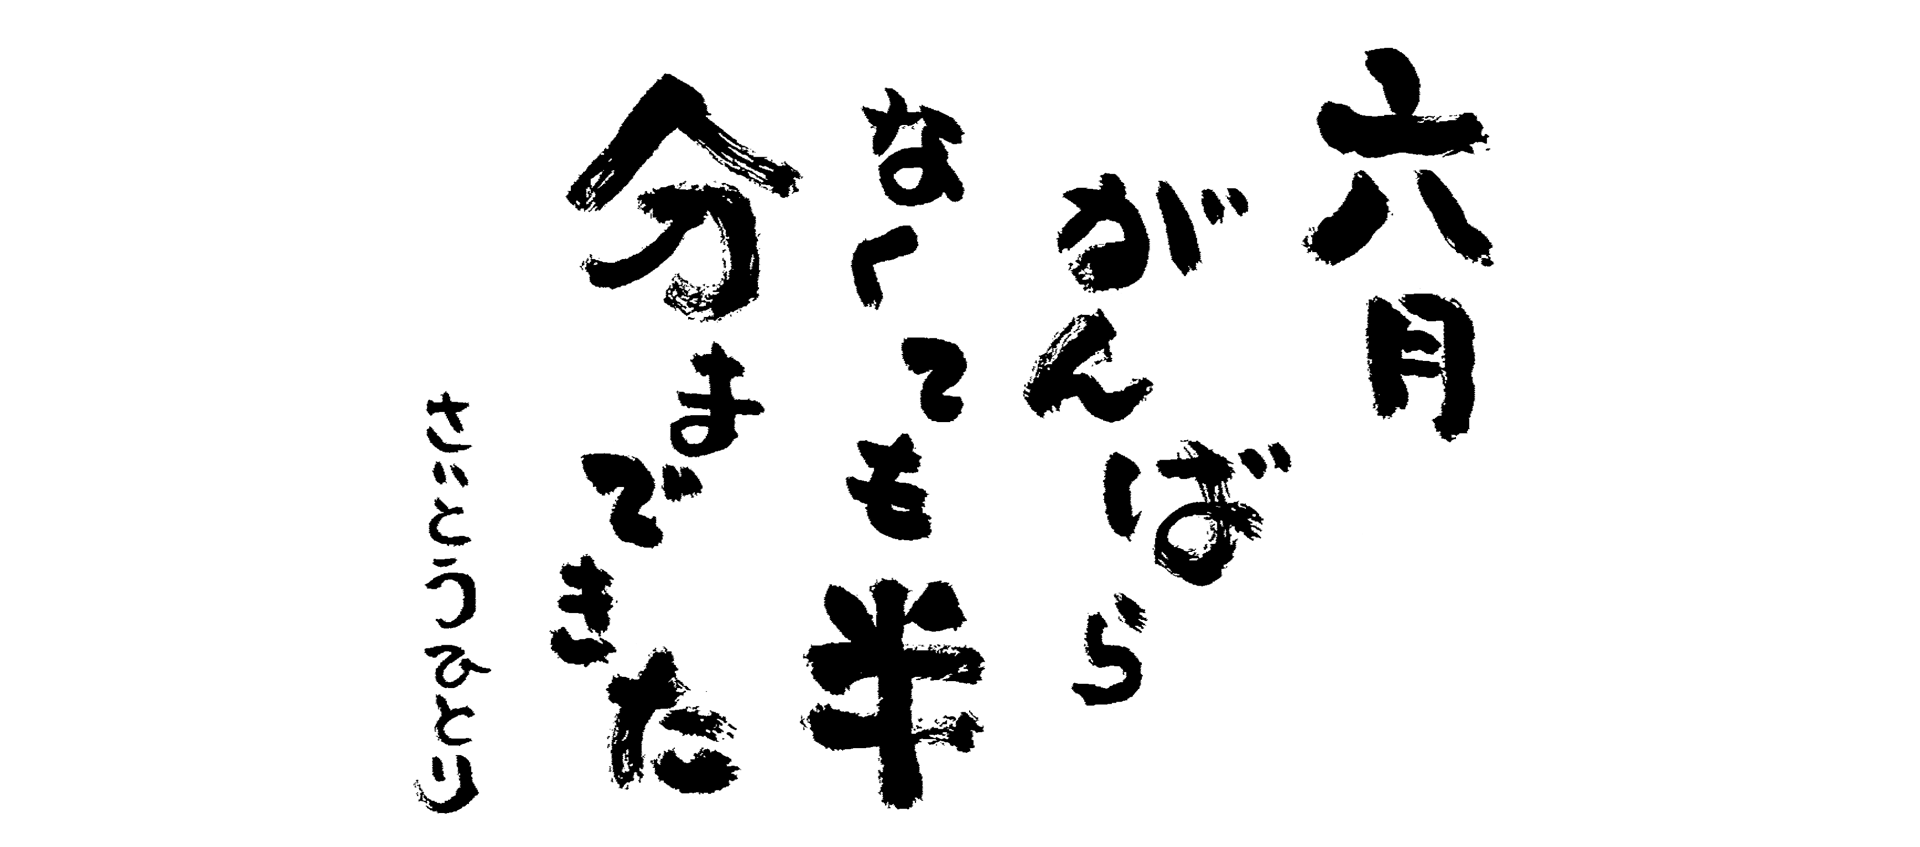 六月
がんばら
なくても半
分まできた
さとうひとり